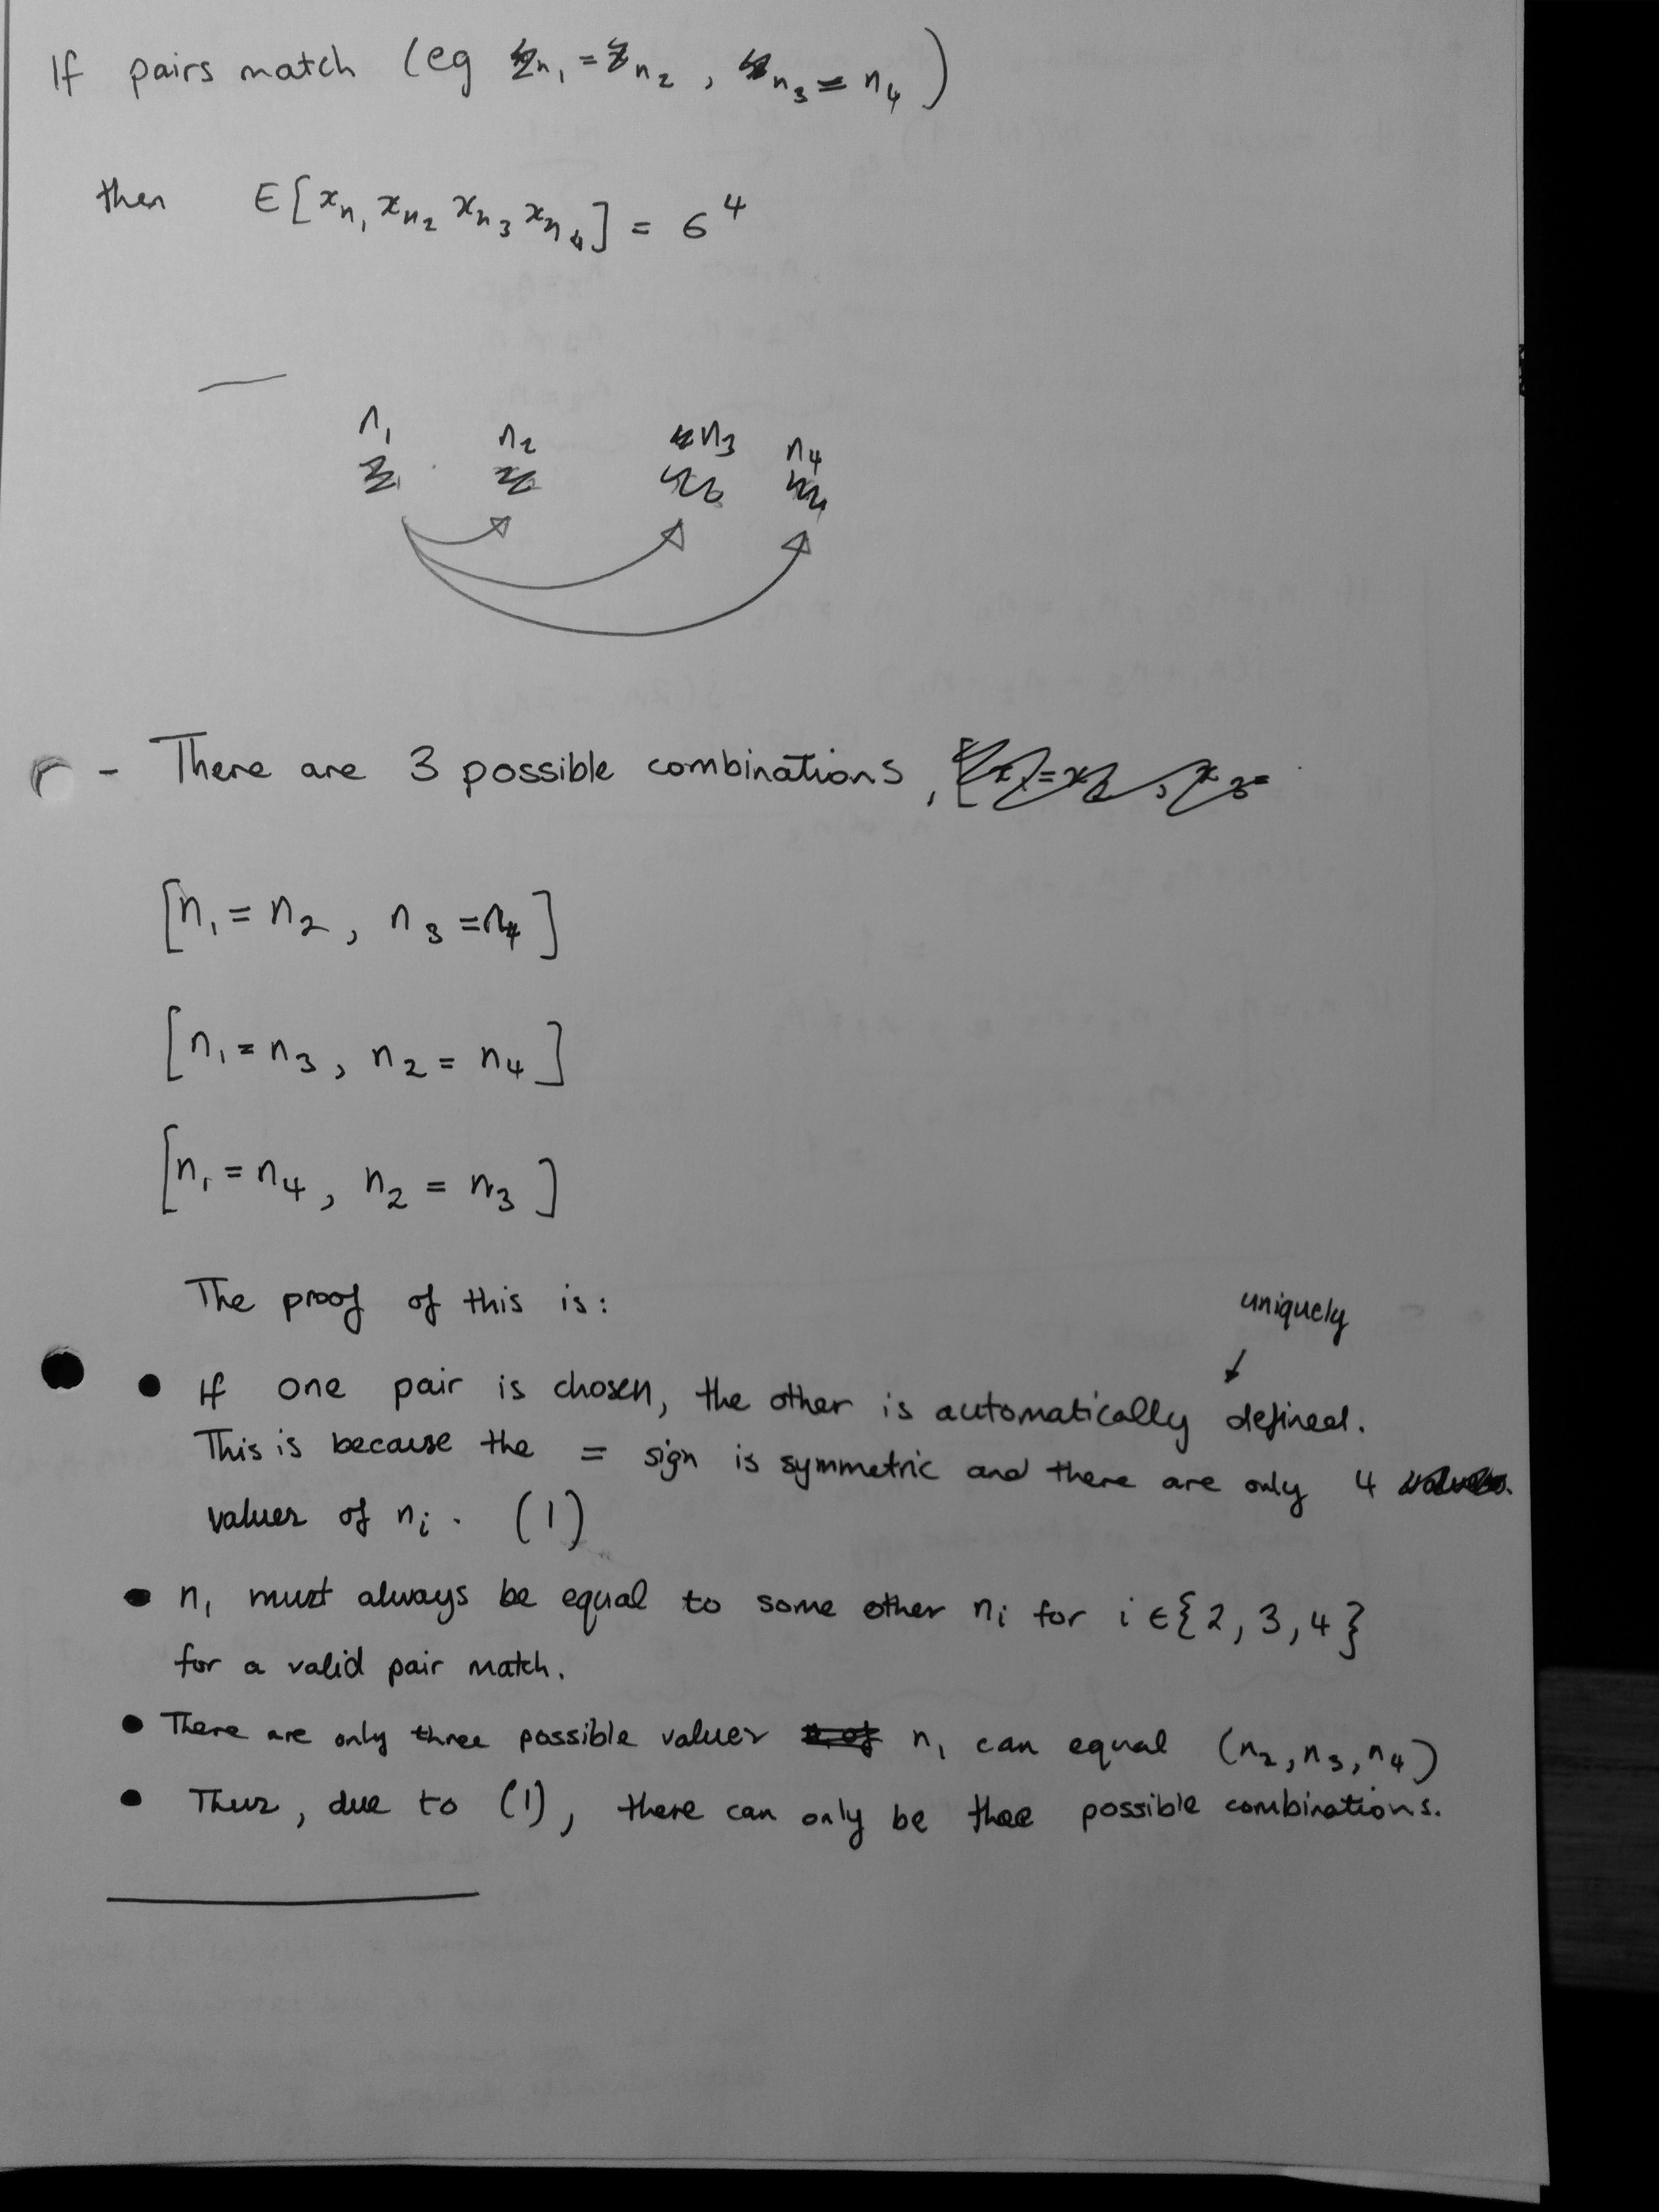 If pairs match (eg n₁ = n₂ , n₃ = n₄ )
then E[xn₁ xn₂ xn₃ xn₄] = 6⁴
n₁ n₂ n₃ n₄
- There are 3 possible combinations, [x₁ = x₂ , x₃ =
[n₁ = n₂ , n₃ = n₄ ]
[n₁ = n₃ , n₂ = n₄ ]
[n₁ = n₄ , n₂ = n₃ ]
The proof of this is:
uniquely
• If one pair is chosen, the other is automatically defined.
This is because the = sign is symmetric and there are only 4
values of nᵢ . (1)
• n₁ must always be equal to some other nᵢ for i ∈ {2, 3, 4}
for a valid pair match.
• There are only three possible values n₁ can equal (n₂, n₃, n₄)
• Thus, due to (1), there can only be thee possible combinations.